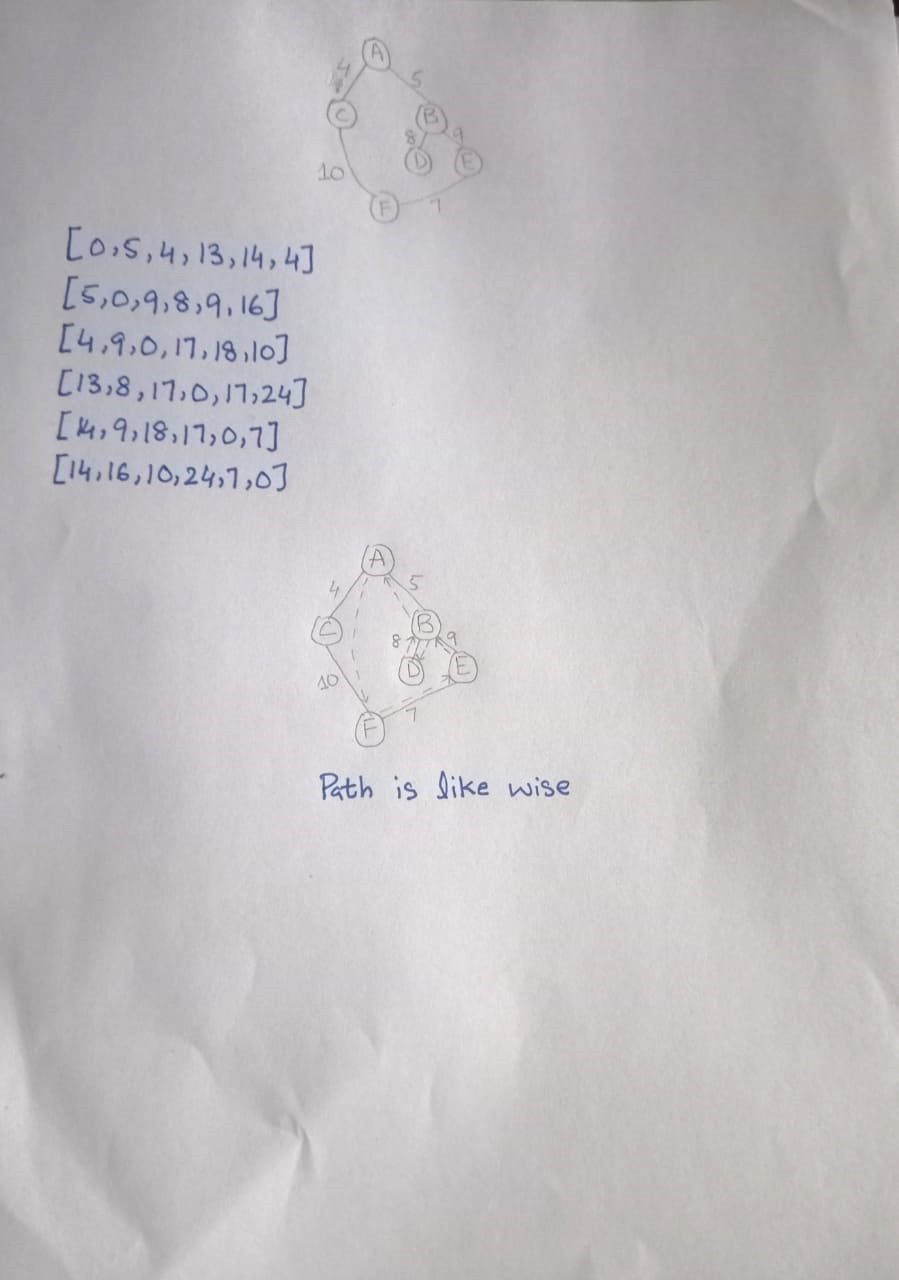 A
4 5
C B
8 9
D E
10
F 7
[0,5,4,13,14,4]
[5,0,9,8,9,16]
[4,9,0,17,18,10]
[13,8,17,0,17,24]
[14,9,18,17,0,7]
[14,16,10,24,7,0]
A
4 5
C B
8 9
D E
10
F 7
Path is like wise